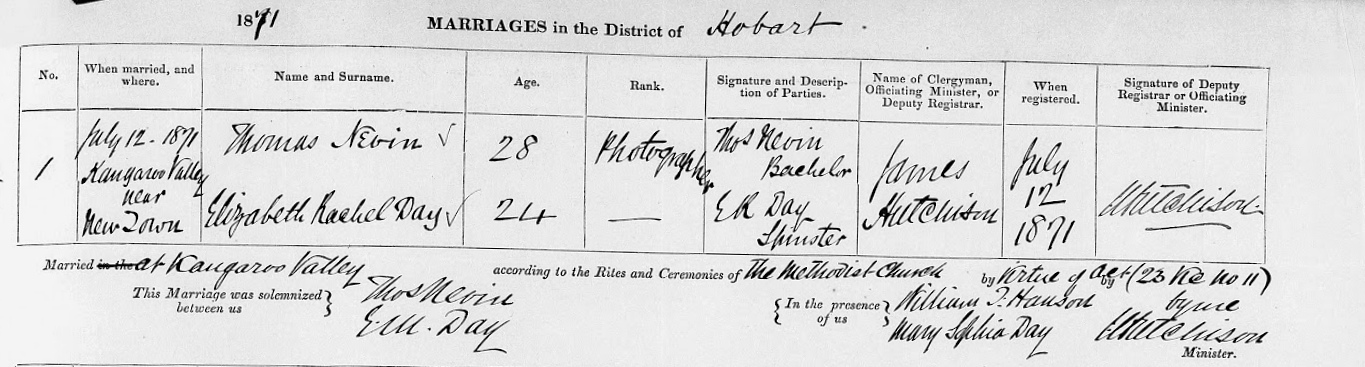 1871 MARRIAGES in the District of Hobart
No. When married, and where. Name and Surname. Age. Rank. Signature and Description of Parties. Name of Clergyman, Officiating Minister, or Deputy Registrar. When registered. Signature of Deputy Registrar or Officiating Minister.
1
July 12 - 1871
Kangaroo Valley
near
New Town
Thomas Nevin
Elizabeth Rachel Day
28
24
Photographer
—
Thos Nevin
Bachelor
E R Day
Spinster
James
Hutchison
July
12
1871
J Hutchison
Married in the at Kangaroo Valley according to the Rites and Ceremonies of The Methodist Church by Virtue of Act by (23 Vic no 11)
This Marriage was solemnized between us
Thos Nevin
E.R. Day
In the presence of us
William T. Hanson
Mary Sophia Day
by me
J Hutchison
Minister.